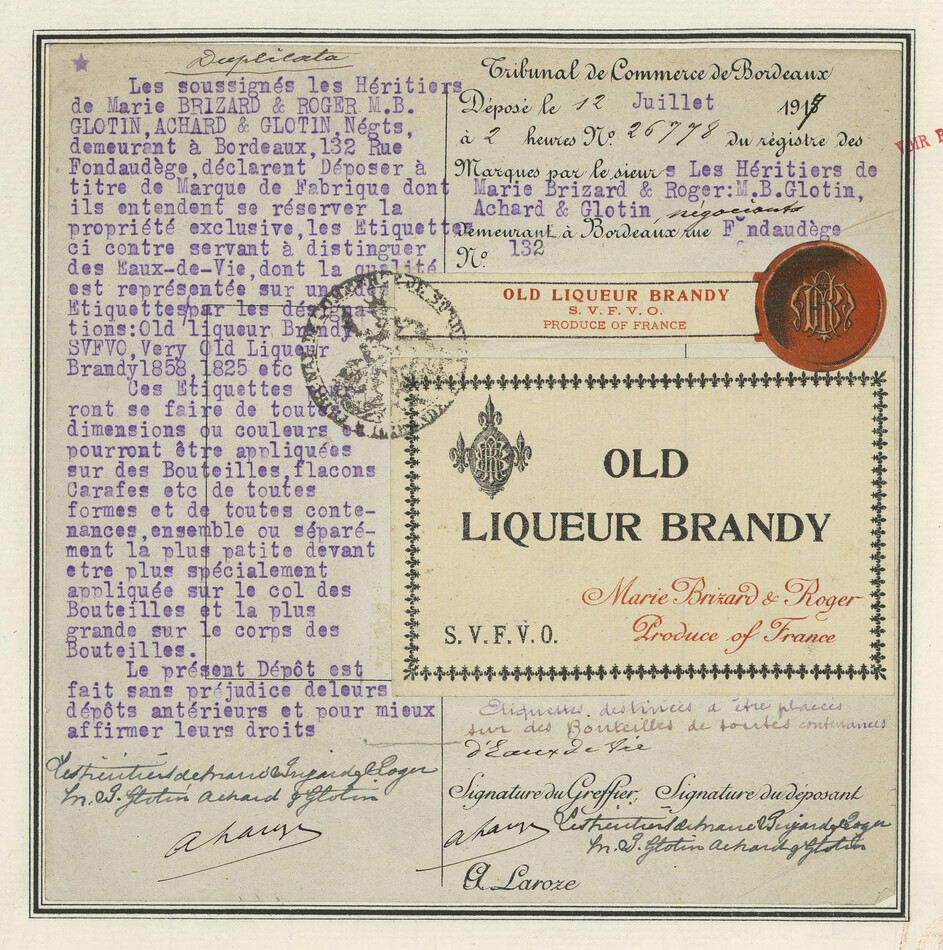 Duplicata
Les soussignés les Héritiers
de Marie BRIZARD & ROGER M.B.
GLOTIN,ACHARD & GLOTIN,Négts,
demeurant à Bordeaux,132 Rue
Fondaudège,déclarent Déposer à
titre de Marque de Fabrique dont
ils entendent se réserver la
propriété exclusive,les Etiquettes
ci contre servant à distinguer
des Eaux-de-Vie,dont la qualité
est représentée sur une des
Etiquettes par les désigna
tions:Old liqueur Brandy
SVFVO,Very Old Liqueur
Brandy1858,1825 etc
Ces Etiquettes
ront se faire de toutes
dimensions ou couleurs et
pourront être appliquées
sur des Bouteilles,flacons
Carafes etc de toutes
formes et de toutes conte-
nances,ensemble ou séparé-
ment la plus patite devant
etre plus spécialement
appliquée sur le col des
Bouteilles et la plus
grande sur le corps des
Bouteilles.
Le présent Dépôt est
fait sans préjudice deleurs
dépôts antérieurs et pour mieux
affirmer leurs droits
Les héritiers de Marie Brizard & Roger
M. B. Glotin Achard & Glotin
Tribunal de Commerce de Bordeaux
Déposé le 12 Juillet 1917
à 2 heures No. 26778 du régistre des
Marques par le sieurs Les Héritiers de
Marie Brizard & Roger:M.B.Glotin,
Achard & Glotin, négociants
Demeurant à Bordeaux rue Fondaudège
No. 132
OLD LIQUEUR BRANDY
S. V. F. V. O.
PRODUCE OF FRANCE
OLD
LIQUEUR BRANDY
Marie Brizard & Roger
S.V.F.V.O.
Produce of France
Etiquettes destinées à être placées
sur des Bouteilles de toutes contenances
d'Eaux de Vie
Signature du Greffier, Signature du déposant
Les héritiers de Marie Brizard & Roger
M. B. Glotin Achard & Glotin
A. Laroze